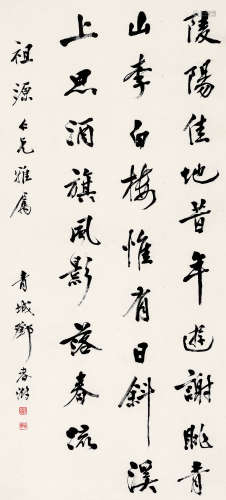 陵陽佳地昔年遊謝朓青
山李白梅惟有日斜溪
上思酒旗風影落春流
祖源仁兄雅屬　青城鄧春澍